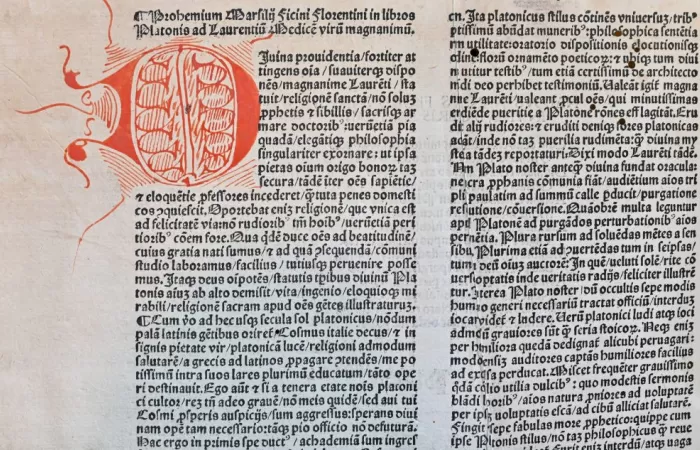 ¶Prohemium Marsilij Ficini Florentini in libros
Platonis ad Laurentiũ Medicẽ virũ magnanimũ.
DIuina prouidentia/fortiter at
tingens oĩa/suauiterqꝫ dispo
nẽs/magnanime Laurẽti/sta
tuit/religionẽ sanctã/nõ soluꝫ
ꝓphetis ⁊ sibillis/sacrisqꝫ ar
mare doctoribꝰ:uerũetiã pia
quadã/elegãtiqꝫ philosophia
singulariter exornare: ut ipsa
pietas oium origo bonoꝝ taꝫ
secura/tãdẽ iter oẽs sapiẽtie/
⁊ eloquẽtie ꝓfessores incederet/q̃ tuta penes domesti
cos ꝯquiescit. Oportebat eniꝫ religionẽ/que vnica est
ad felicitatẽ via:nõ rudioribꝰ tm̃ hoĩbꝰ/uerũetiã peri
tioribꝰ cõem fore. Qua q̃dẽ duce oẽs ad beatitudinẽ/
cuius gratia nati sumus/⁊ ad quã ꝯsequendã/cõmuni
studio laboramus/facilius/tutiusqꝫ peruenire posse
mus. Itaqꝫ deus oĩpotẽs/statutis tẽꝑibus diuinũ Pla
tonis aĩuꝫ ab alto demisit/vita/ingenio/eloquioqꝫ mi
rabili/religionẽ sacram apud oẽs gẽtes illustraturuꝫ.
¶Cum ṽo ad hec usqꝫ secula sol platonicus/nõdum
palã latinis gẽtibus oriret᷑. Cosmus italie decus/⁊ in
signis pietate vir/platonicã lucẽ/religioni admodum
salutarẽ/a grecis ad latinos ꝓpagare ꝯtendẽs/me po
tissimũ intra suos lares plurimũ educatum/tãto ope
ri destinauit. Ego aũt ⁊ si a tenera etate nõis platoni
ci cultor/reꝫ tñ adeo grauẽ/nõ meis quidẽ/sed aui tui
Cosmi ꝓsperis auspicijs/sum aggressus:sperans diui
nam opẽ tam necessario:tãqꝫ pio officio nõ defuturã.
Hac ergo in primis spe ductꝰ/achademiã sum ingres
en. Ita platonicus stilus cõtinẽs vniuersuꝫ/tribꝰ
ptissimũ abũdat muneribꝰ:philosophica sentẽtia
rũ utilitate:oratorio dispositionis elocutionisqꝫ
odine:florũ ornamẽto poeticoꝝ:⁊ ubiqꝫ tum diui
ni utitur testibꝰ/tum etiã certissimũ de architecto
mũdi deo perhibet testimoniũ. Ualeãt igit᷑ magna
nime Laurẽti/ualeant ꝓcul oẽs/qui minutissima
erdiẽde pueritie a Platone rõnes efflagitãt. Eru
dit alij rudiores:⁊ eruditi deniqꝫ fores platonicas
adãt/inde nõ taꝫ puerilia rudimẽta:q̃ diuina my
stẽa tãdẽ reportaturi. Dixi modo Laurẽti tãdẽ.
Nam Plato noster anteq̃ diuina fundat oracula:
ne sacra ꝓphanis cõmunia fiãt/auditiũm aĩos tri
pli paulatim ad summũ calle ꝑducit/purgatione
resolutione/cõuersione. Quãobrẽ multa leguntur
apud Platonẽ ad purgãdos perturbationibꝰ aĩos
pernẽtia. Plura rursum ad soluẽdas mẽtes a sen
sibꝰ. Plurima etiã ad ꝯuertẽdas tum in seipsas/
tum in deũ oĩuꝫ auctorẽ. In quẽ/ueluti solẽ/rite cõ
uersi/optatis inde veritatis radijs/feliciter illustrẽ
tur. Interea Plato noster/dũ occultis sepe modis
humano generi necessariũ tractat officiũ/interduꝫ
iocari videt᷑ ⁊ ludere. Uerũ platonici ludi atqꝫ ioci
admdũ grauiores sũt q̃ seria stoicoꝝ. Neqꝫ enim
per humiliora quedã dedignat᷑ alicubi peruagari:
modo sensiꝫ auditores captãs humiliores facilius
ad excelsa perducat. Miscet frequẽter grauissimo
q̃dã cõsilio utilia dulcibꝰ: quo modestis sermonis
blãdi lepõribꝰ/aĩos natura ꝓniores ad voluptatẽ
per ipsã voluptatis escã/ad cibũ alliciat salutarẽ.
Fingit sepe fabulas more poetico:quippe cum
ipse Platonis stilus/nõ taꝫ philosophicus q̃ reue